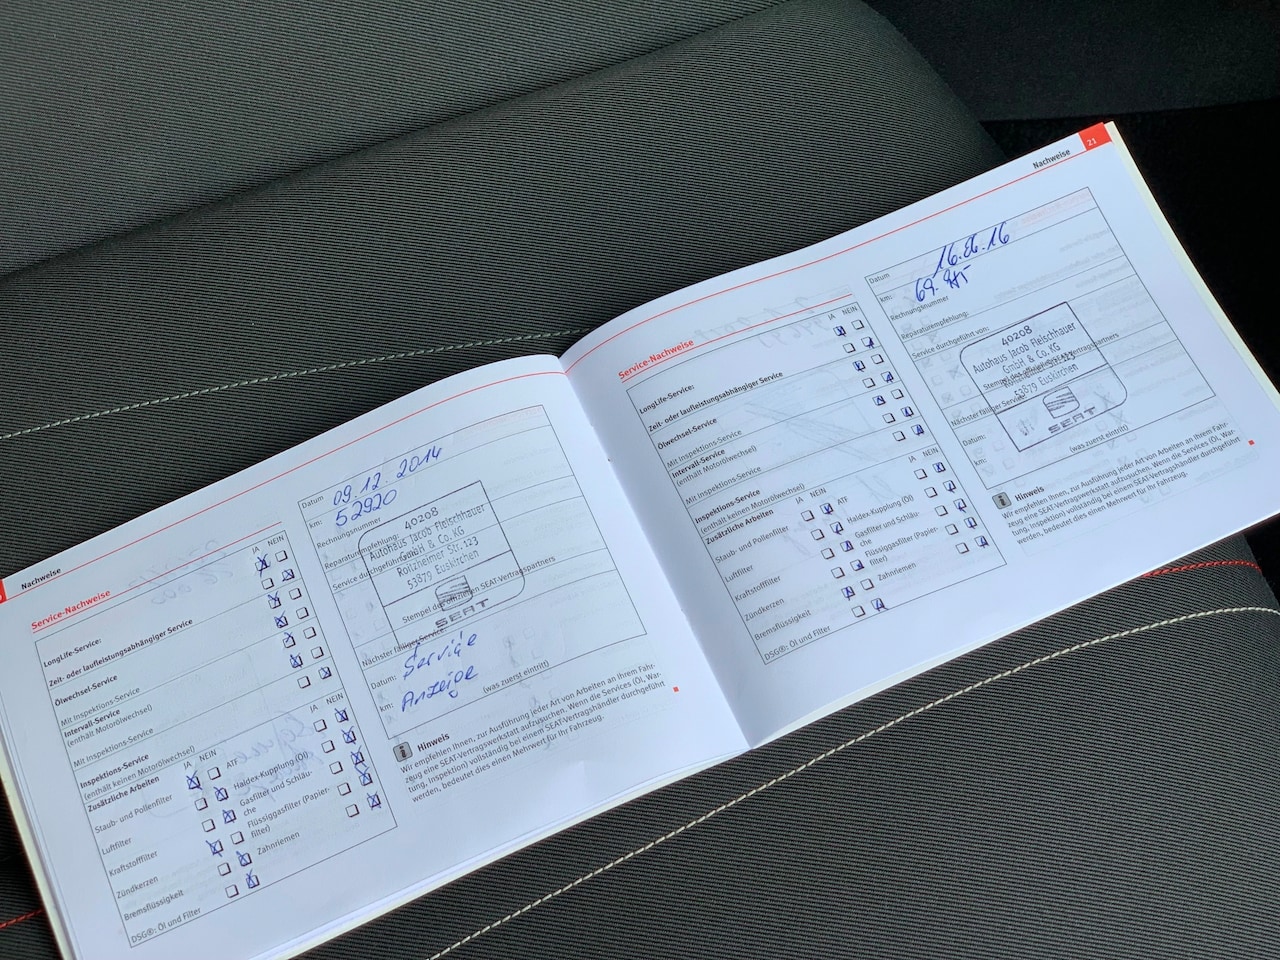 Nachweise
Service-Nachweise
LongLife-Service:
Zeit- oder laufleistungsabhängiger Service
Ölwechsel-Service
Mit Inspektions-Service
Intervall-Service
(enthält Motorölwechsel)
Mit Inspektions-Service
Inspektions-Service
(enthält keinen Motorölwechsel)
Zusätzliche Arbeiten
Staub- und Pollenfilter
Luftfilter
Kraftstofffilter
Zündkerzen
Bremsflüssigkeit
DSG®: Öl und Filter
JA NEIN
JA NEIN
ATF
Haldex-Kupplung (Öl)
Gasfilter und Schläu-
che
Flüssiggasfilter (Papier-
filter)
Zahnriemen
JA NEIN
Datum 09.12.2014
km: 52920
Rechnungsnummer
Reparaturempfehlung:
Service durchgeführt von:
40208
Autohaus Jacob Fleischhauer
GmbH & Co. KG
Roitzheimer Str. 123
53879 Euskirchen
Stempel des offiziellen SEAT-Vertragspartners
SEAT
Nächster fälliger Service:
Datum: Service
km: Anzeige
(was zuerst eintritt)
Hinweis
Wir empfehlen Ihnen, zur Ausführung jeder Art von Arbeiten an Ihrem Fahr-
zeug eine SEAT-Vertragswerkstatt aufzusuchen. Wenn die Services (Öl, War-
tung, Inspektion) vollständig bei einem SEAT-Vertragshändler durchgeführt
werden, bedeutet dies einen Mehrwert für Ihr Fahrzeug.
Nachweise 21
Service-Nachweise
LongLife-Service:
Zeit- oder laufleistungsabhängiger Service
Ölwechsel-Service
Mit Inspektions-Service
Intervall-Service
(enthält Motorölwechsel)
Mit Inspektions-Service
Inspektions-Service
(enthält keinen Motorölwechsel)
Zusätzliche Arbeiten
Staub- und Pollenfilter
Luftfilter
Kraftstofffilter
Zündkerzen
Bremsflüssigkeit
DSG®: Öl und Filter
JA NEIN
JA NEIN
ATF
Haldex-Kupplung (Öl)
Gasfilter und Schläu-
che
Flüssiggasfilter (Papier-
filter)
Zahnriemen
JA NEIN
Datum
km:
Rechnungsnummer
Reparaturempfehlung:
Service durchgeführt von:
40208
Autohaus Jacob Fleischhauer
GmbH & Co. KG
53879 Euskirchen
Stempel des offiziellen SEAT-Vertragspartners
SEAT
Nächster fälliger Service:
Datum:
km:
(was zuerst eintritt)
Hinweis
Wir empfehlen Ihnen, zur Ausführung jeder Art von Arbeiten an Ihrem Fahr-
zeug eine SEAT-Vertragswerkstatt aufzusuchen. Wenn die Services (Öl, War-
tung, Inspektion) vollständig bei einem SEAT-Vertragshändler durchgeführt
werden, bedeutet dies einen Mehrwert für Ihr Fahrzeug.